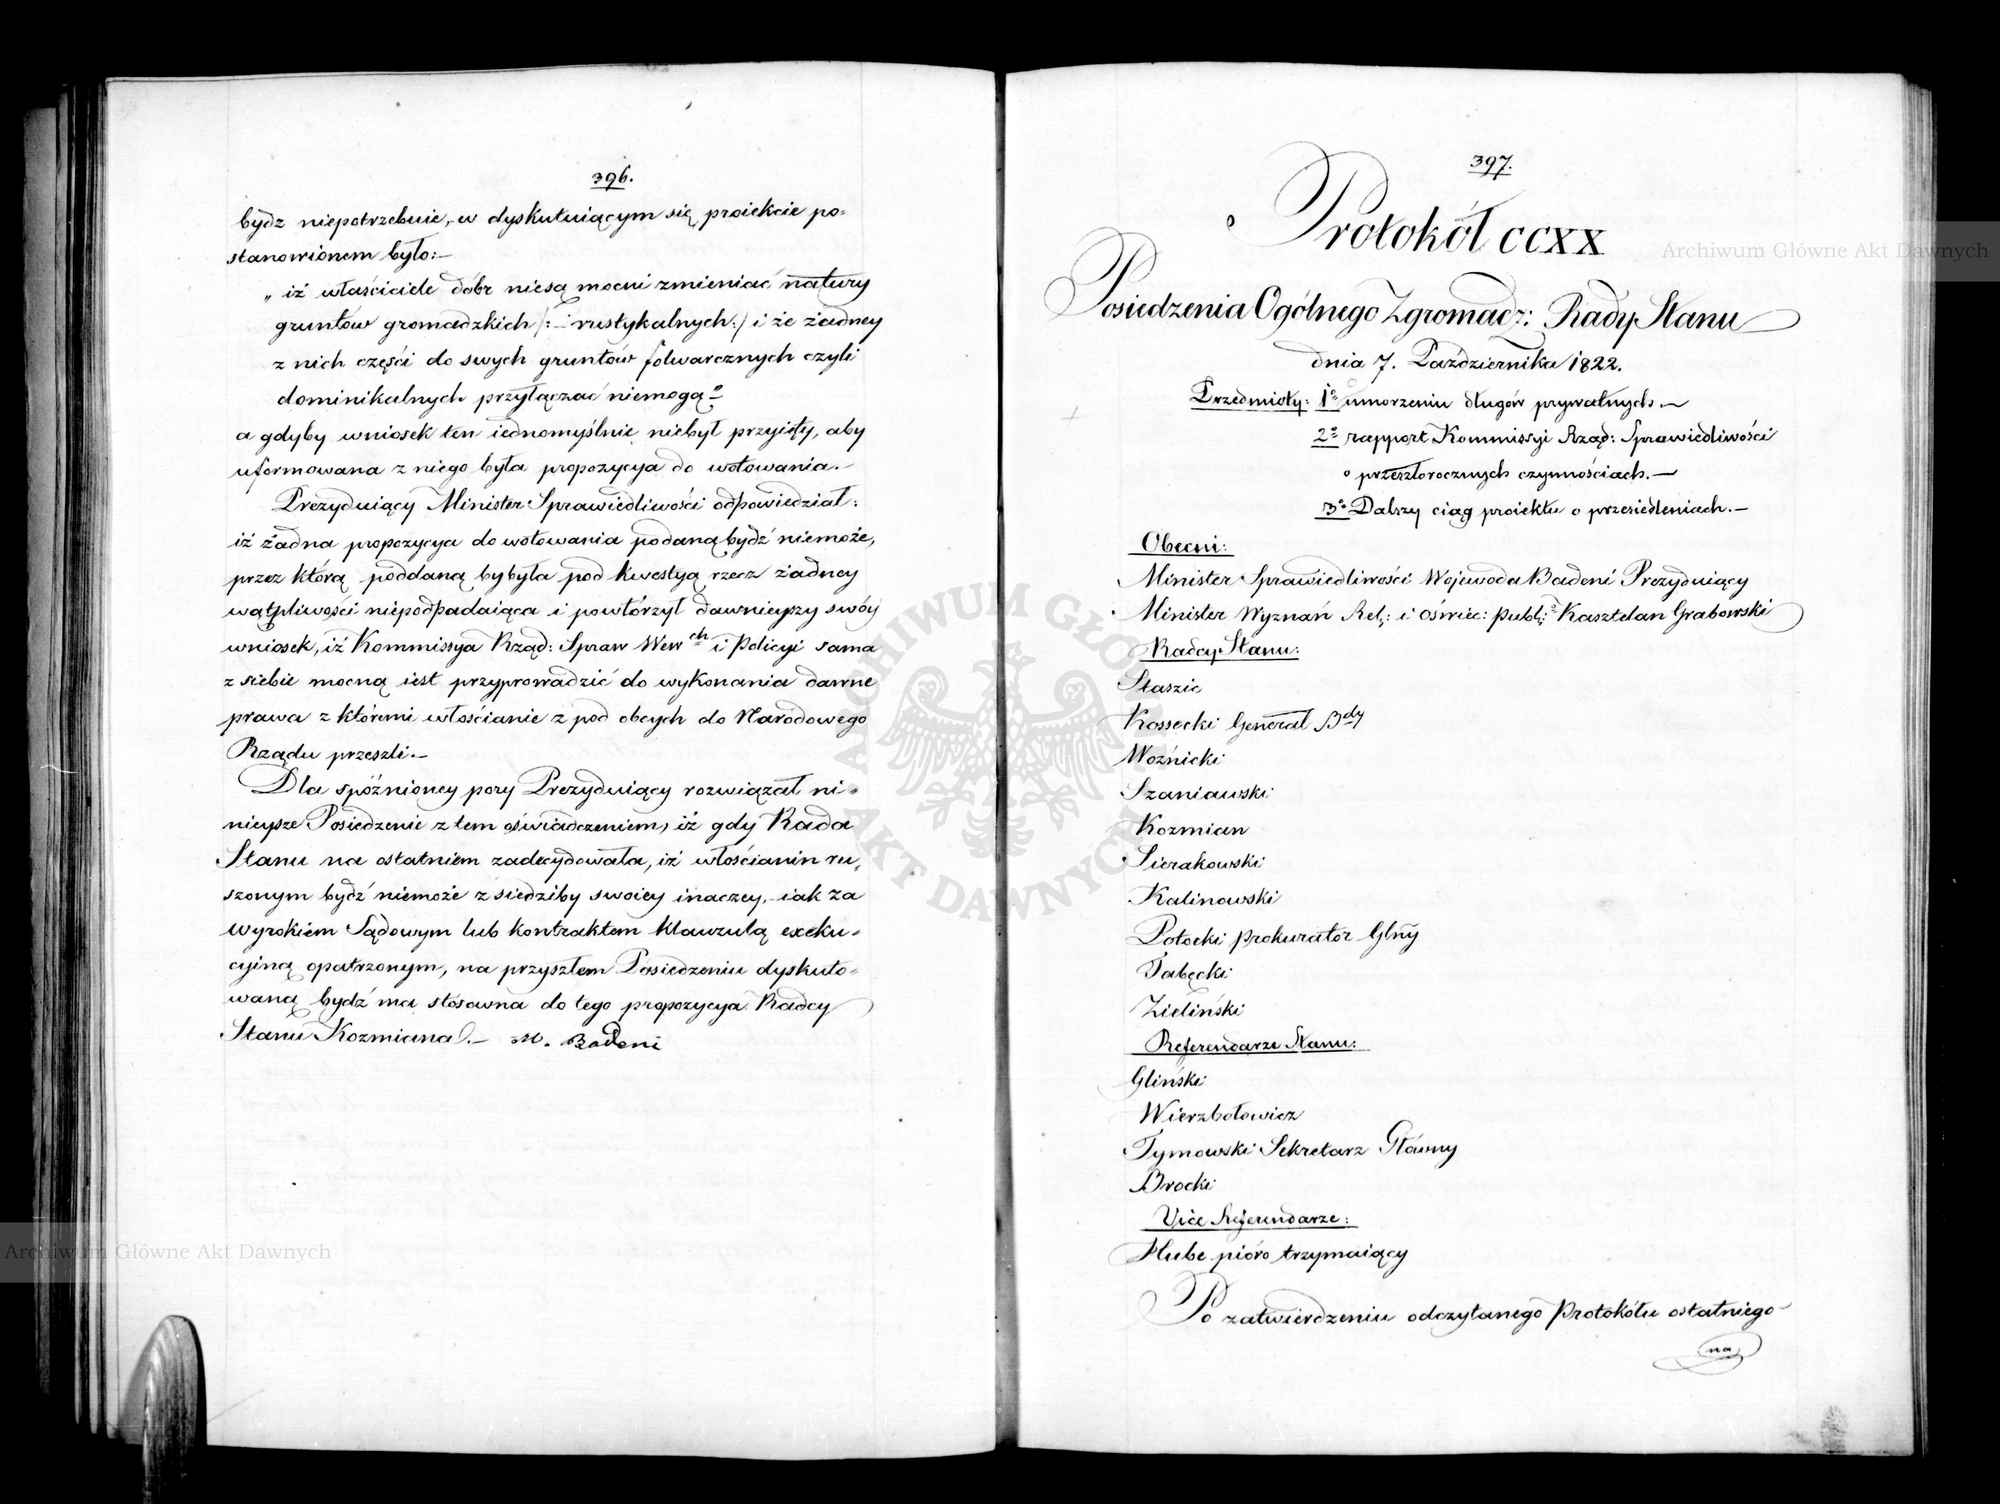 396.
bydz niepotrzebuie, w dyskutuiącym się proiekcie po-
stanowionem było:-
„ iż właściciele dóbr niesą mocni zmieniać natury
gruntów gromadzkich /:- rustykalnych:/ i że żadney
z nich części do swych gruntów folwarcznych czyli
dominikalnych przyłączać niemogą"
a gdyby wniosek ten iednomyślnie niebył przyięty, aby
uformowana z niego była propozycya do wotowania.-
Prezyduiący Minister Sprawiedliwości odpowiedział:
iż żadna propozycya do wotowania podaną bydź niemoże,
przez którą poddaną bybyła pod kwestyą rzecz żadney
wątpliwości niepodpadaiąca i powtórzył dawnieyszy swóy
wniosek, iż Kommissya Rząd: Spraw Wew^ch i Policyi sama
z siebie mocną iest przyprowadzić do wykonania dawne
prawa z któremi włościanie z pod obcych do Narodowego
Rządu przeszli.-
Dla spóźnioney pory Prezyduiący rozwiązał ni-
nieysze Posiedzenie z tem oświadczeniem, iż gdy Rada
Stanu na ostatniem zadecydowała, iż włościanin ru-
szonym bydź niemoże z siedziby swoiey inaczey, iak za
wyrokiem Sądowym lub kontraktem klauzulą exeku-
cyiną opatrzonym, na przyszłem Posiedzeniu dyskuto-
waną bydź ma stósowna do tego propozycya Radcy
Stanu Kozmiana.- M. Badeni
397.
Protokół CCXX
Posiedzenia Ogólnego Zgromadz: Rady Stanu
dnia 7. Października 1822.
Przedmioty: 1° umorzeniu długów prywatnych.-
2° rapport Kommissyi Rząd: Sprawiedliwości
o przeszłorocznych czynnościach.-
3° Dalszy ciąg proiektu o przesiedleniach.-
Obecni:
Minister Sprawiedliwości Wojewoda Badeni Prezyduiący
Minister Wyznań Rel: i Oświec: publ: Kasztelan Grabowski
Radcy Stanu:
Staszic
Kossecki Generał B^dy
Woźnicki
Szaniawski
Kozmian
Sierakowski
Kalinowski
Potocki Prokurator Glny
Tabęcki
Zieliński
Referendarze Stanu:
Gliński
Wierzbołowicz
Tymowski Sekretarz Główny
Brocki
Vice Referendarze:
Hube pióro trzymaiący
Po zatwierdzeniu odczytanego Protokółu ostatniego
na
Archiwum Główne Akt Dawnych
Archiwum Główne Akt Dawnych
ARCHIWUM GŁÓWNE AKT DAWNYCH